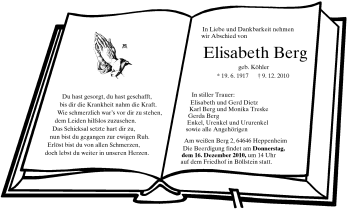 Du hast gesorgt, du hast geschafft,
bis dir die Krankheit nahm die Kraft.
Wie schmerzlich war's vor dir zu stehen,
dem Leiden hilflos zuzusehen.
Das Schicksal setzte hart dir zu,
nun bist du gegangen zur ewigen Ruh.
Erlöst bist du von allen Schmerzen,
doch lebst du weiter in unseren Herzen.
In Liebe und Dankbarkeit nehmen
wir Abschied von
Elisabeth Berg
geb. Köhler
* 19. 6. 1917 † 9. 12. 2010
In stiller Trauer:
Elisabeth und Gerd Dietz
Karl Berg und Monika Treske
Gerda Berg
Enkel, Urenkel und Ururenkel
sowie alle Angehörigen
Am weißen Berg 2, 64646 Heppenheim
Die Beerdigung findet am Donnerstag,
dem 16. Dezember 2010, um 14 Uhr
auf dem Friedhof in Böllstein statt.